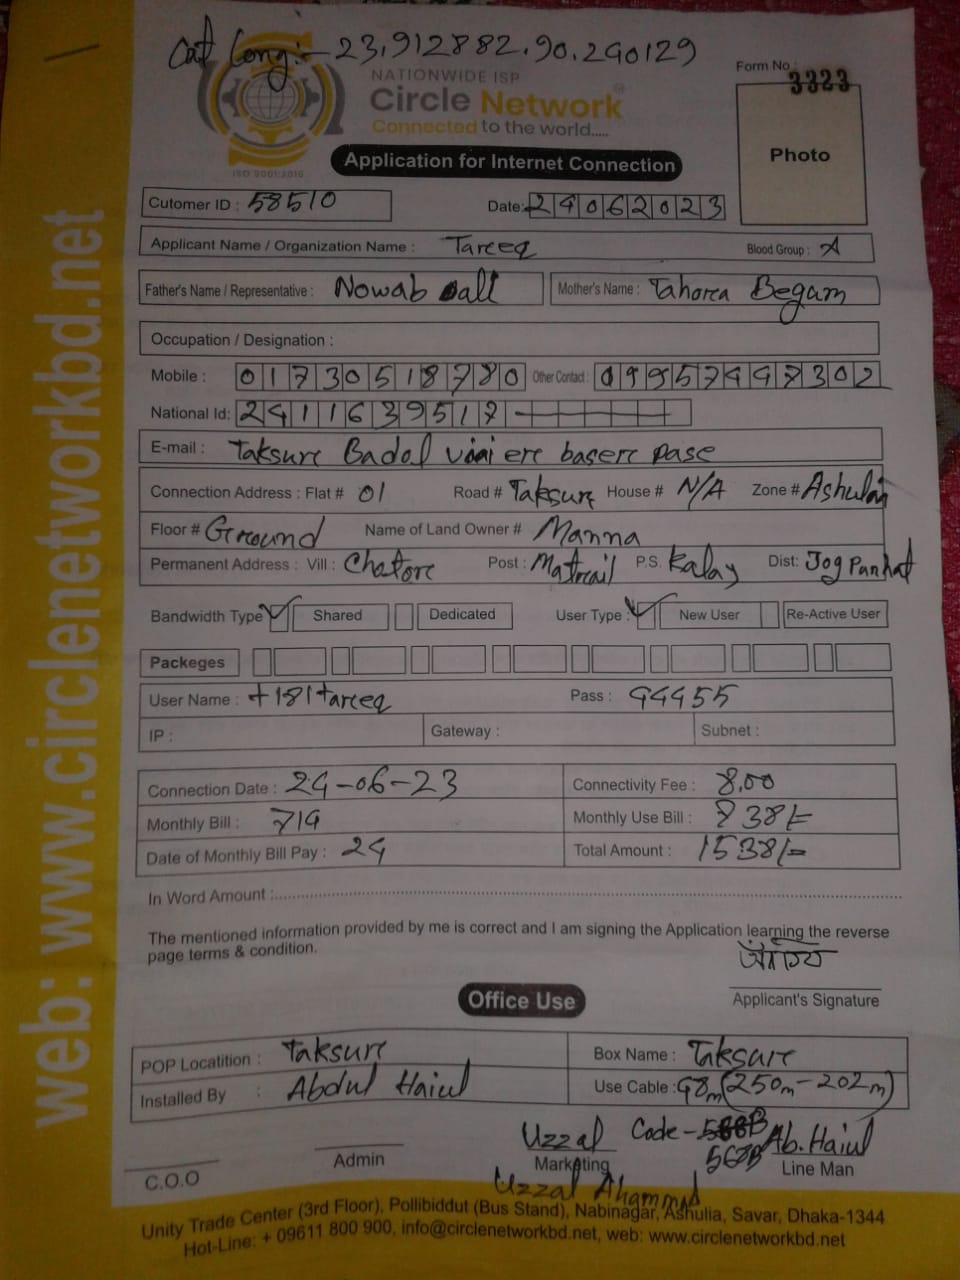 Cat Long:- 23.912882.90.290129
NATIONWIDE ISP
Circle Network
Connected to the world.....
ISO 9001:2015
Form No : 3323
Photo
Application for Internet Connection
Cutomer ID : 58510
Date: 24062023
Applicant Name / Organization Name : Tareeq
Blood Group : A
Father's Name / Representative : Nowab all
Mother's Name : Tahorea Begam
Occupation / Designation :
Mobile : 01730518780 Other Contact :
National Id: 2411639517
E-mail : Taksure Badol vai ere basere pase
Connection Address : Flat # 01 Road # Taksure House # N/A Zone # Ashulai
Floor # Ground Name of Land Owner # Manna
Permanent Address : Vill : Chatore Post : Matrail P.S. Kalay Dist: Jog Panhat
Bandwidth Type Shared Dedicated User Type : New User Re-Active User
Packeges
User Name : +181tareeq Pass : 94455
IP : Gateway : Subnet :
Connection Date : 24-06-23 Connectivity Fee : 8.00
Monthly Bill : 714 Monthly Use Bill : 738/=
Date of Monthly Bill Pay : 24 Total Amount : 1538/=
In Word Amount :
The mentioned information provided by me is correct and I am signing the Application learning the reverse
page terms & condition.
Applicant's Signature
Office Use
POP Locatition : Taksure Box Name : Taksure
Installed By : Abdul Haiul Use Cable : 48m (250m-202m)
Uzzal Code - 568B Ab. Haiul
C.O.O Admin Marketing Line Man
Uzzal Ahammad
Unity Trade Center (3rd Floor), Pollibiddut (Bus Stand), Nabinagar, Ashulia, Savar, Dhaka-1344
Hot-Line: + 09611 800 900, info@circlenetworkbd.net, web: www.circlenetworkbd.net
web: www.circlenetworkbd.net